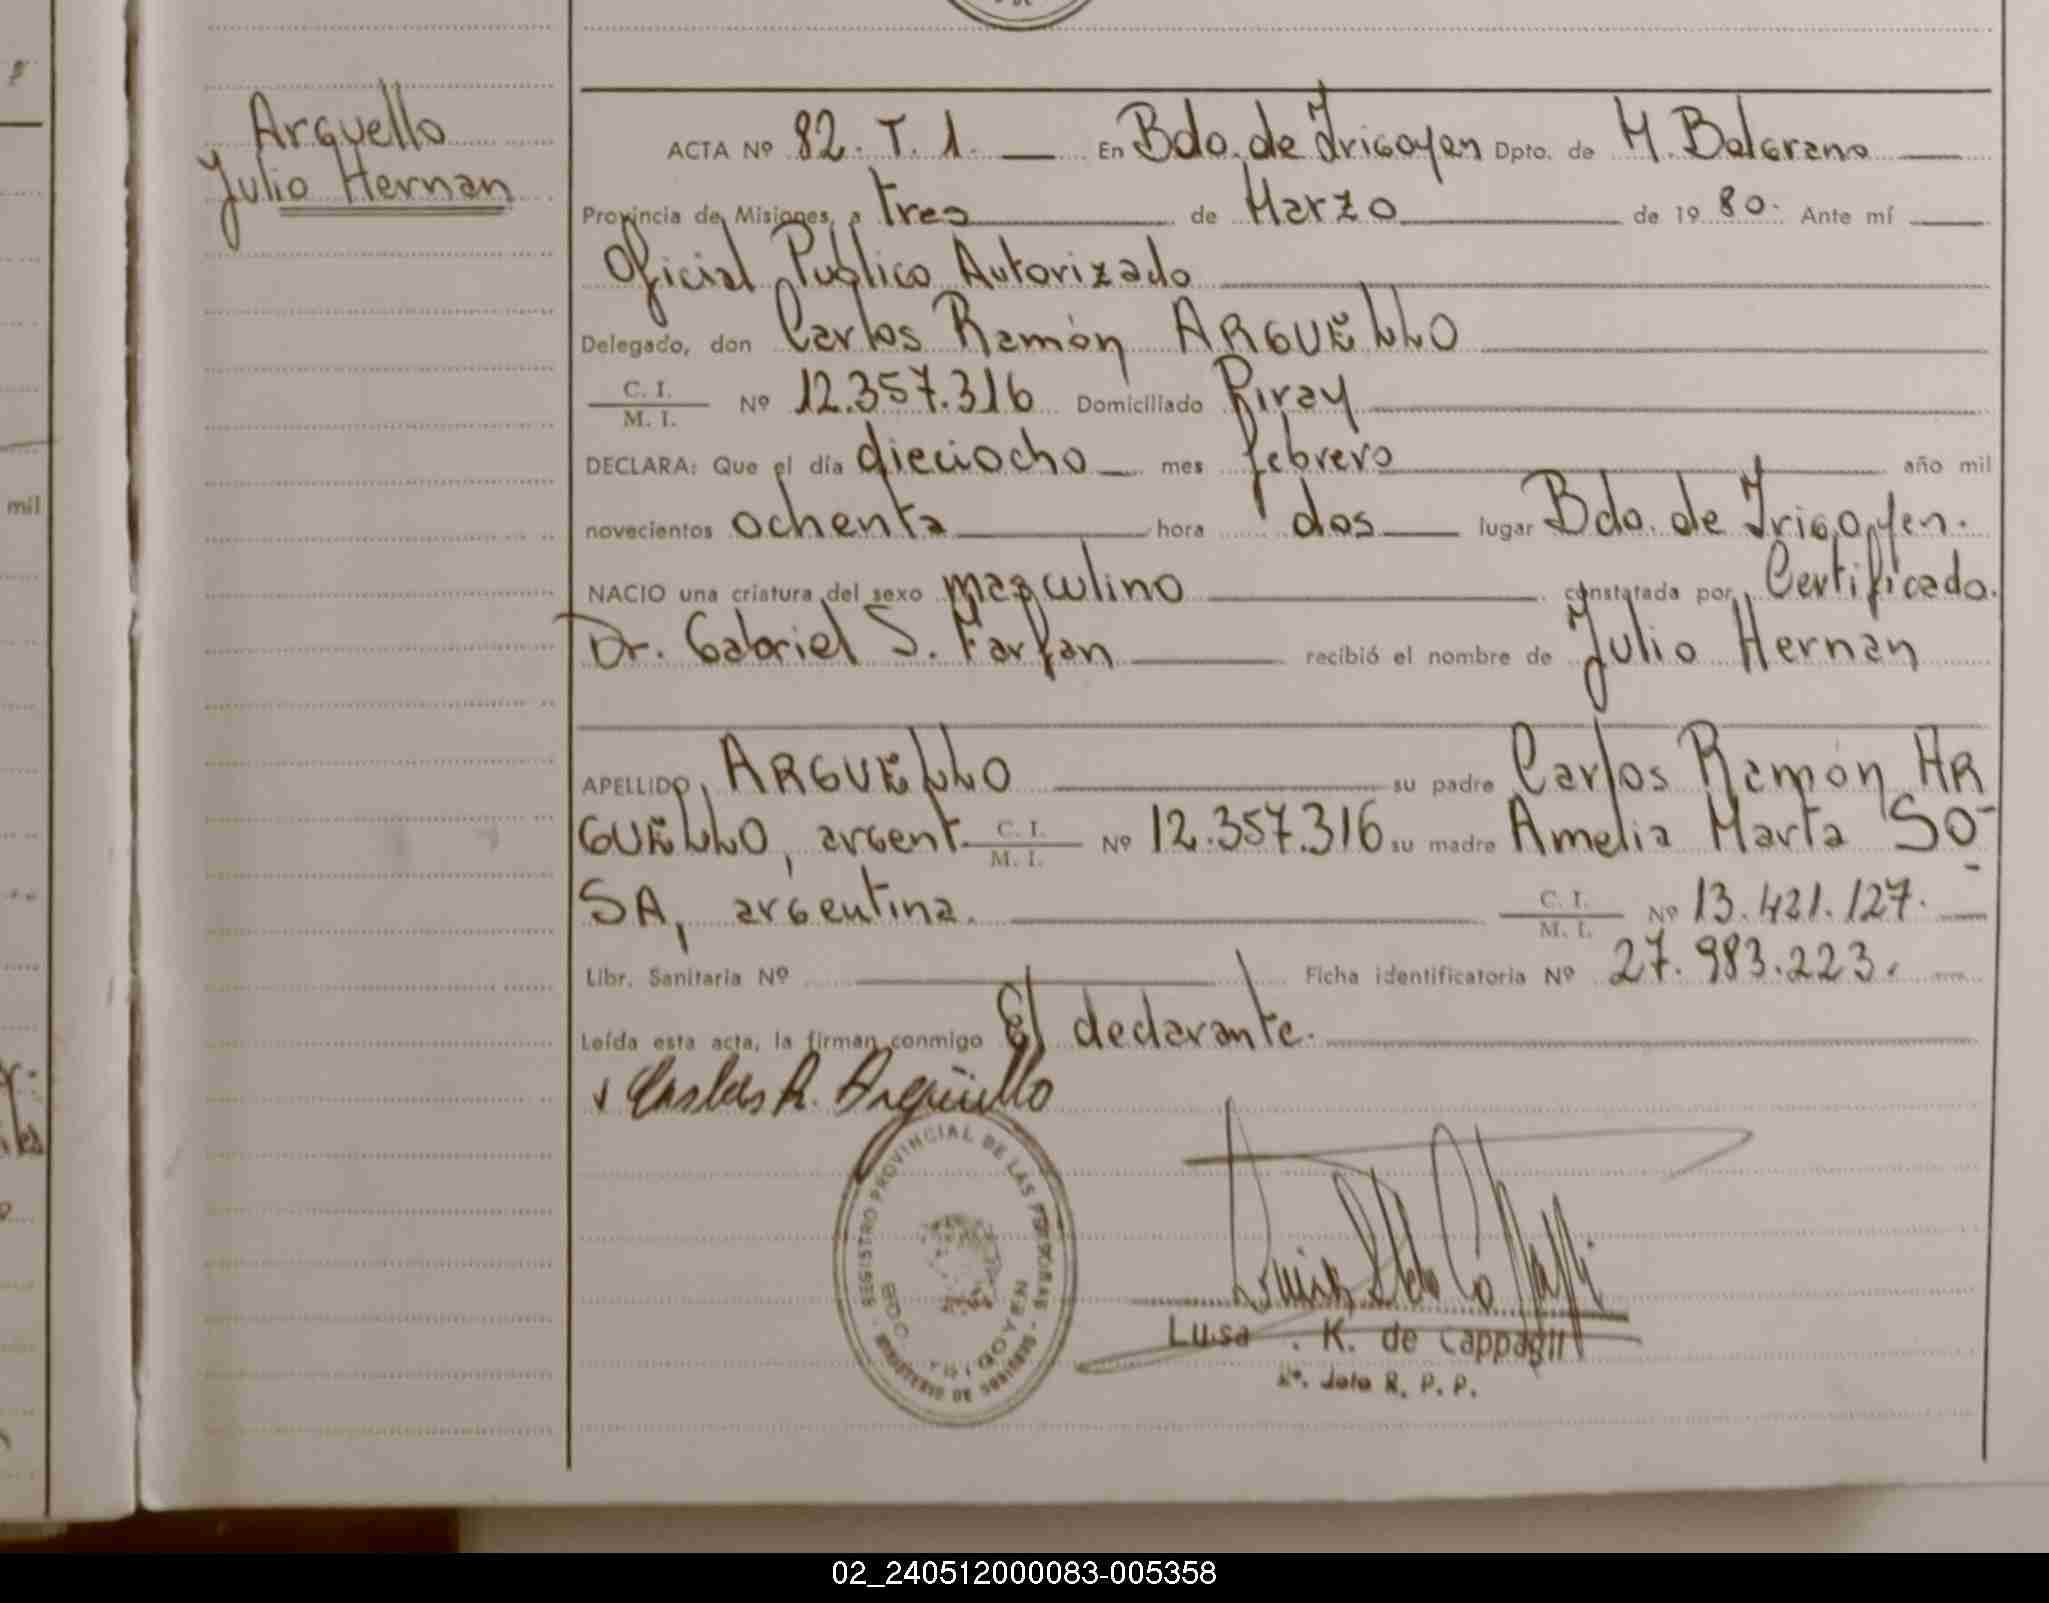 Arguello
Julio Hernan
ACTA Nº 82. T. 1. En Bdo. de Irigoyen Dpto. de M. Belgrano
Provincia de Misiones, a tres de Marzo de 19 80. Ante mí
Oficial Publico Autorizado
Delegado, don Carlos Ramón ARGUËLLO
C. I.
M. I.
Nº 12.357.316 Domiciliado Piray
DECLARA: Que el día dieciocho mes febrero año mil
novecientos ochenta hora dos lugar Bdo. de Irigoyen.
NACIO una criatura del sexo masculino constatada por Certificado.
Dr. Gabriel S. Farfan recibió el nombre de Julio Hernan
APELLIDO ARGUËLLO su padre Carlos Ramón AR
GUËLLO, argent. C. I. M. I. Nº 12.357.316 su madre Amelia Marta SO-
SA, argentina. C. I. M. I. Nº 13.421.127.
Libr. Sanitaria Nº Ficha identificatoria Nº 27.983.223.
Leída esta acta, la firman conmigo El declarante.
Carlos R. Argüello
REGISTRO PROVINCIAL DE LAS PERSONAS
BDO. IRIGOYEN
MINISTERIO DE GOBIERNO
Luisa . K. de Cappagli
Jefe R. P. P.
mil
02_240512000083-005358